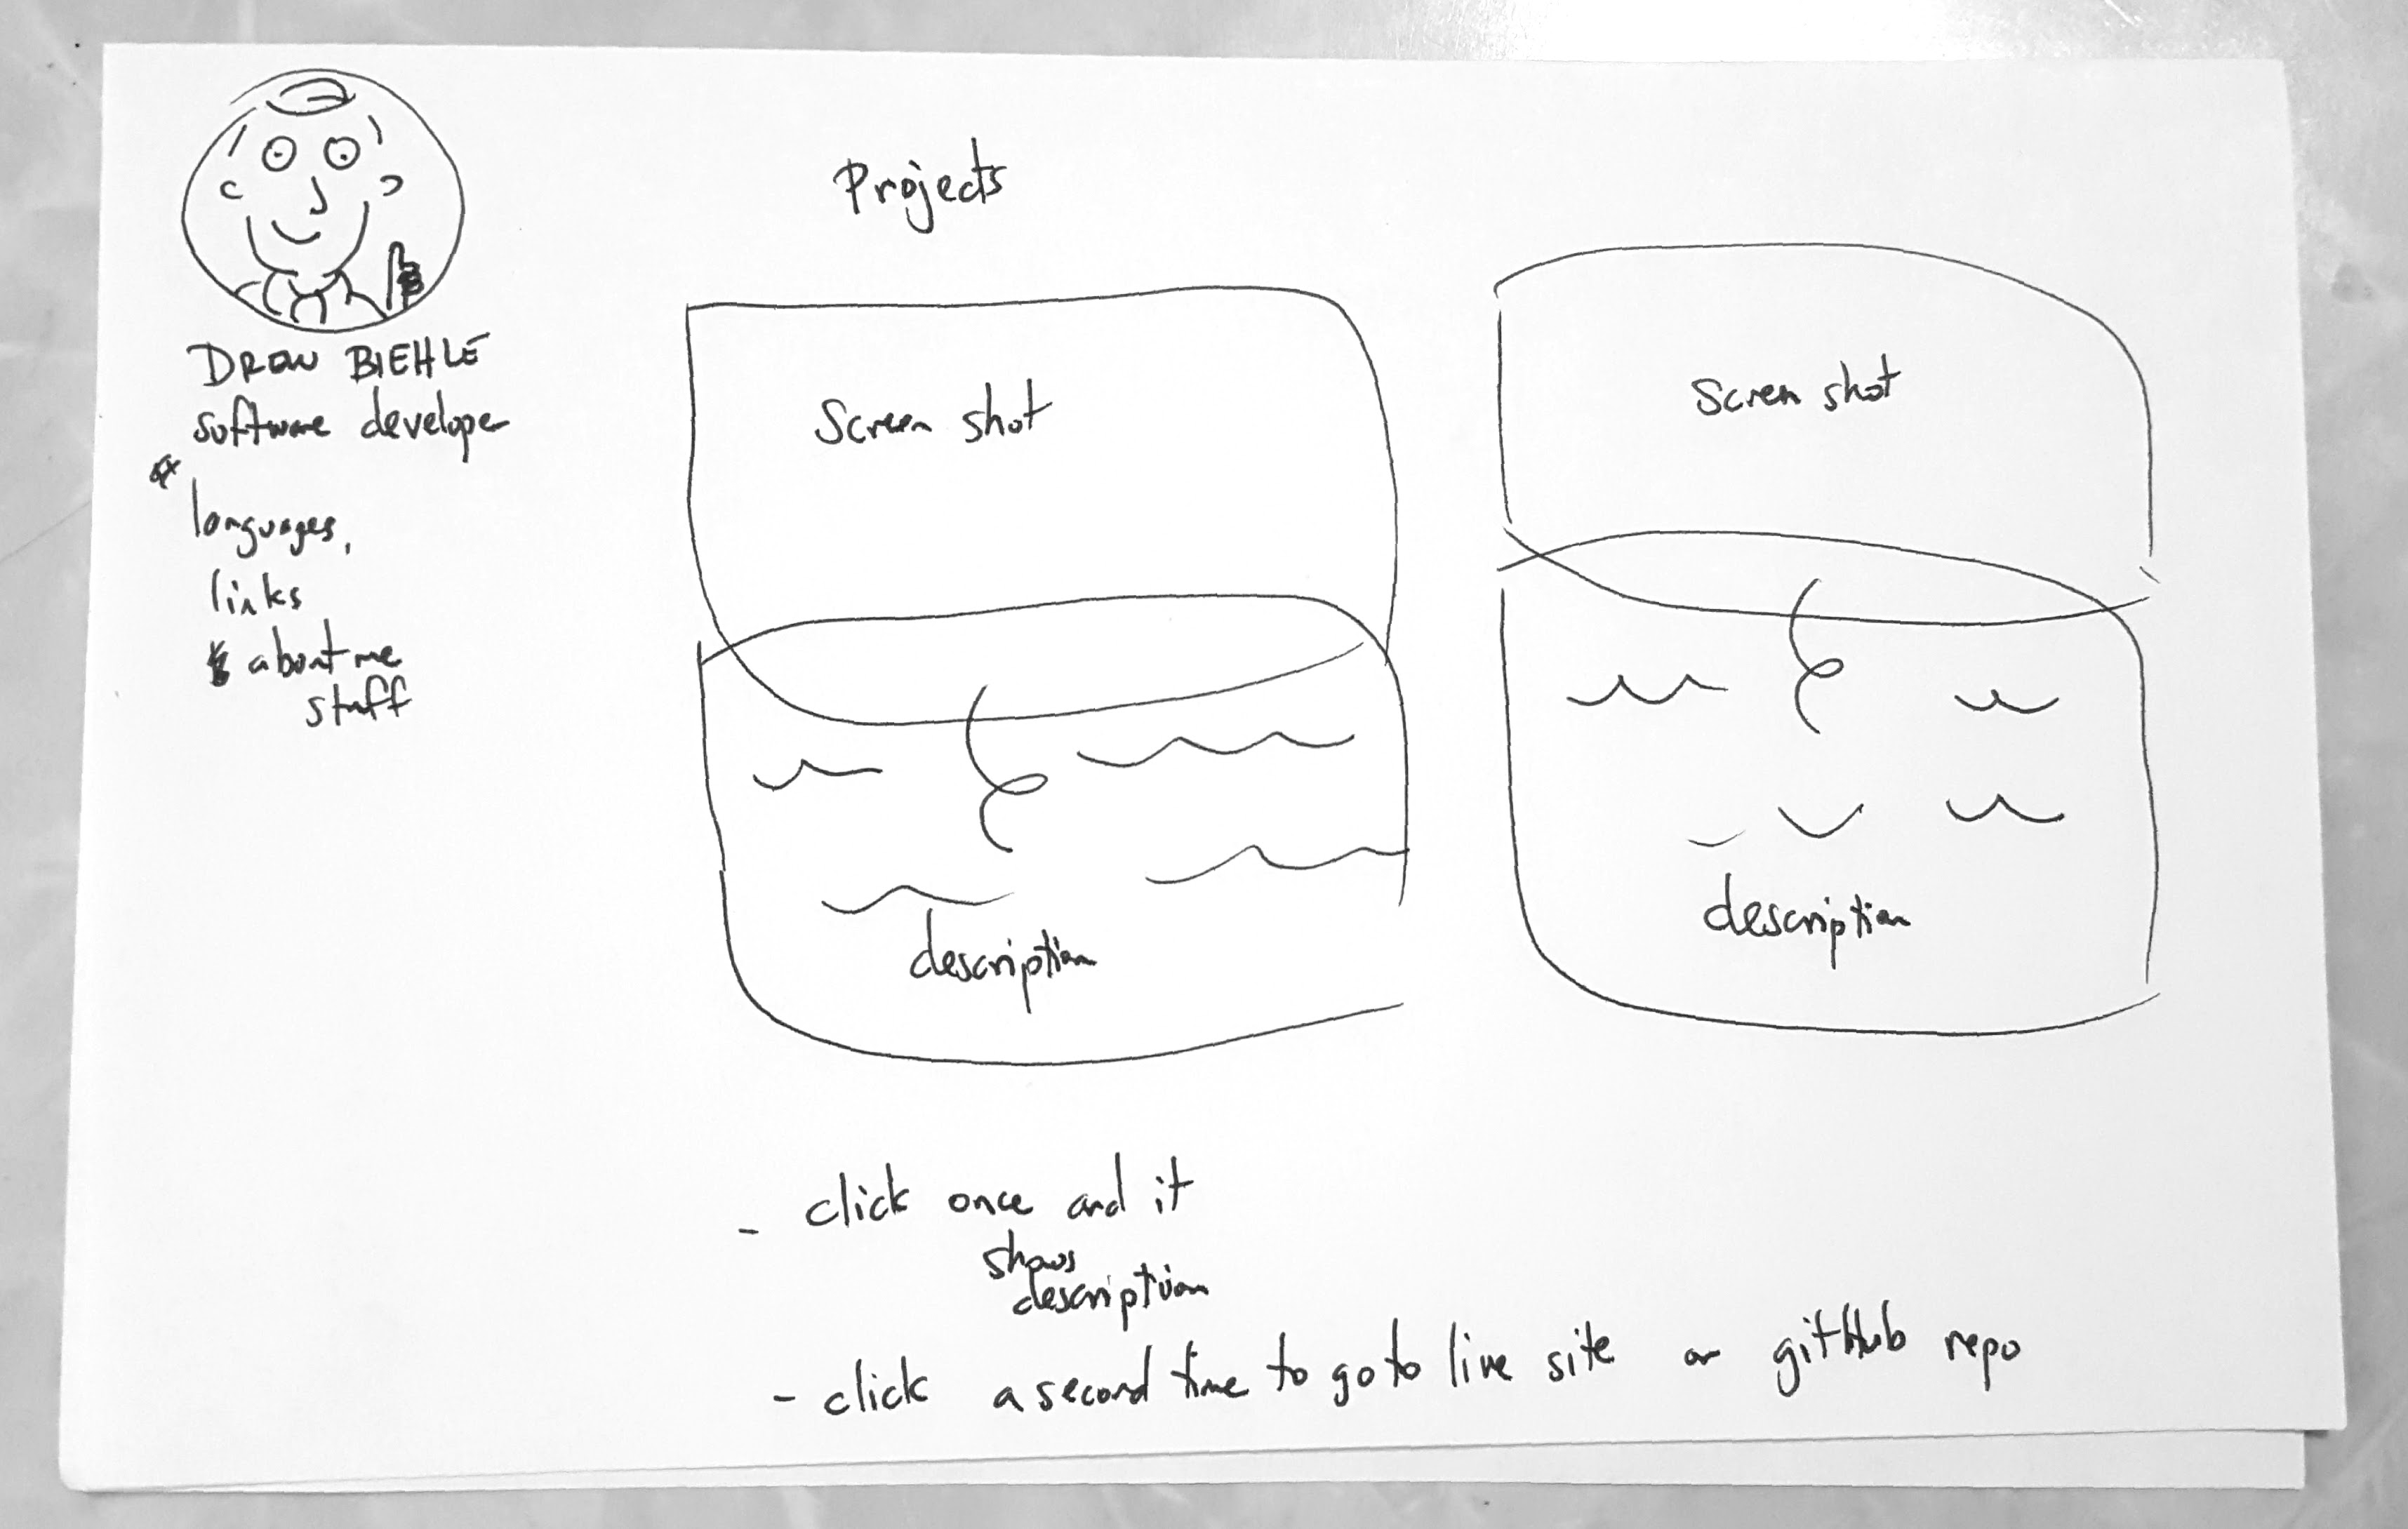 DREW BIEHLE
software developer
languages,
links
& about me
stuff
Projects
Screen shot
description
Screen shot
description
- click once and it
shows
description
- click a second time to go to live site or github repo